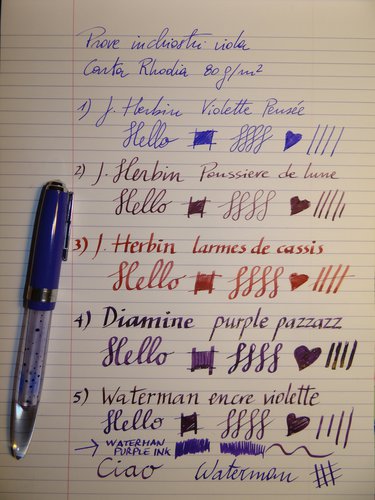 Prove inchiostri: viola
Carta Rhodia 80 g/m²
1) J. Herbin Violette Pensée
Hello ffff
2) J. Herbin Poussiere de lune
Hello ffff
3) J. Herbin larmes de cassis
Hello ffff
4) Diamine purple pazzazz
Hello ffff
5) Waterman encre violette
Hello ffff
→ WATERMAN
PURPLE INK
Ciao Waterman